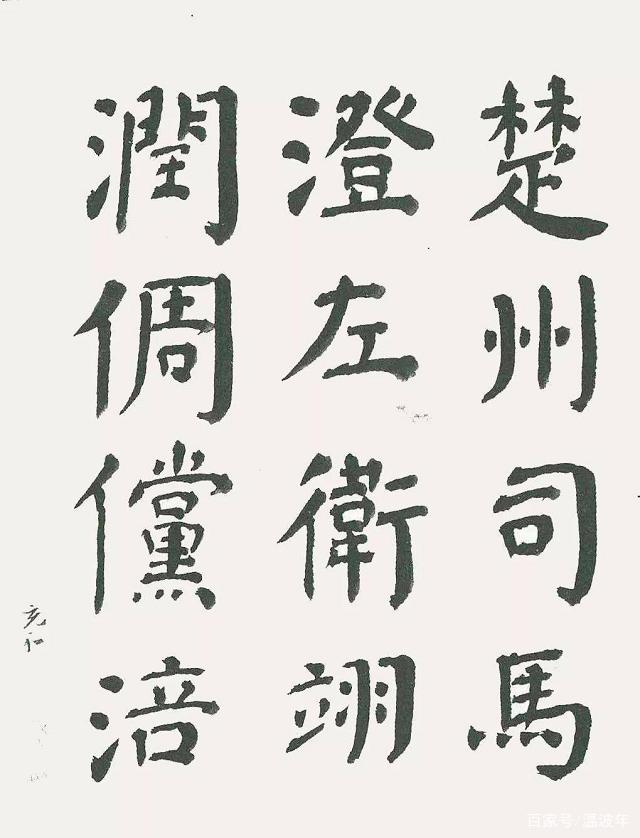 楚州司馬
澄左衛翊
潤倜儻涪
充和
百家号/温波年